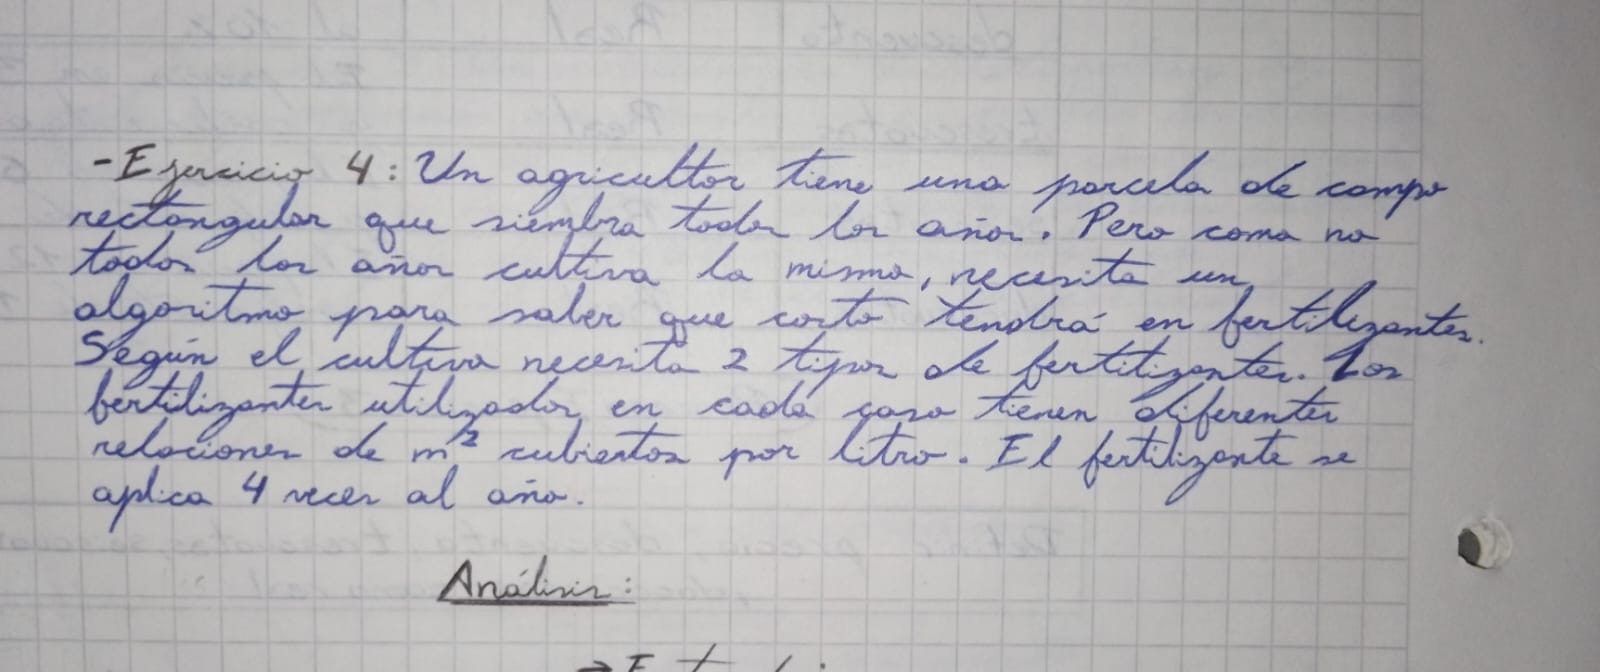 -Ejercicio 4: Un agricultor tiene una parcela de campo
rectangular que siembra todos los años. Pero como no
todos los años cultiva lo mismo, necesita un
algoritmo para saber que costo tendrá en fertilizantes.
Según el cultivo necesita 2 tipos de fertilizantes. Los
fertilizantes utilizados en cada caso tienen diferentes
relaciones de m² cubiertos por litro. El fertilizante se
aplica 4 veces al año.
Análisis: